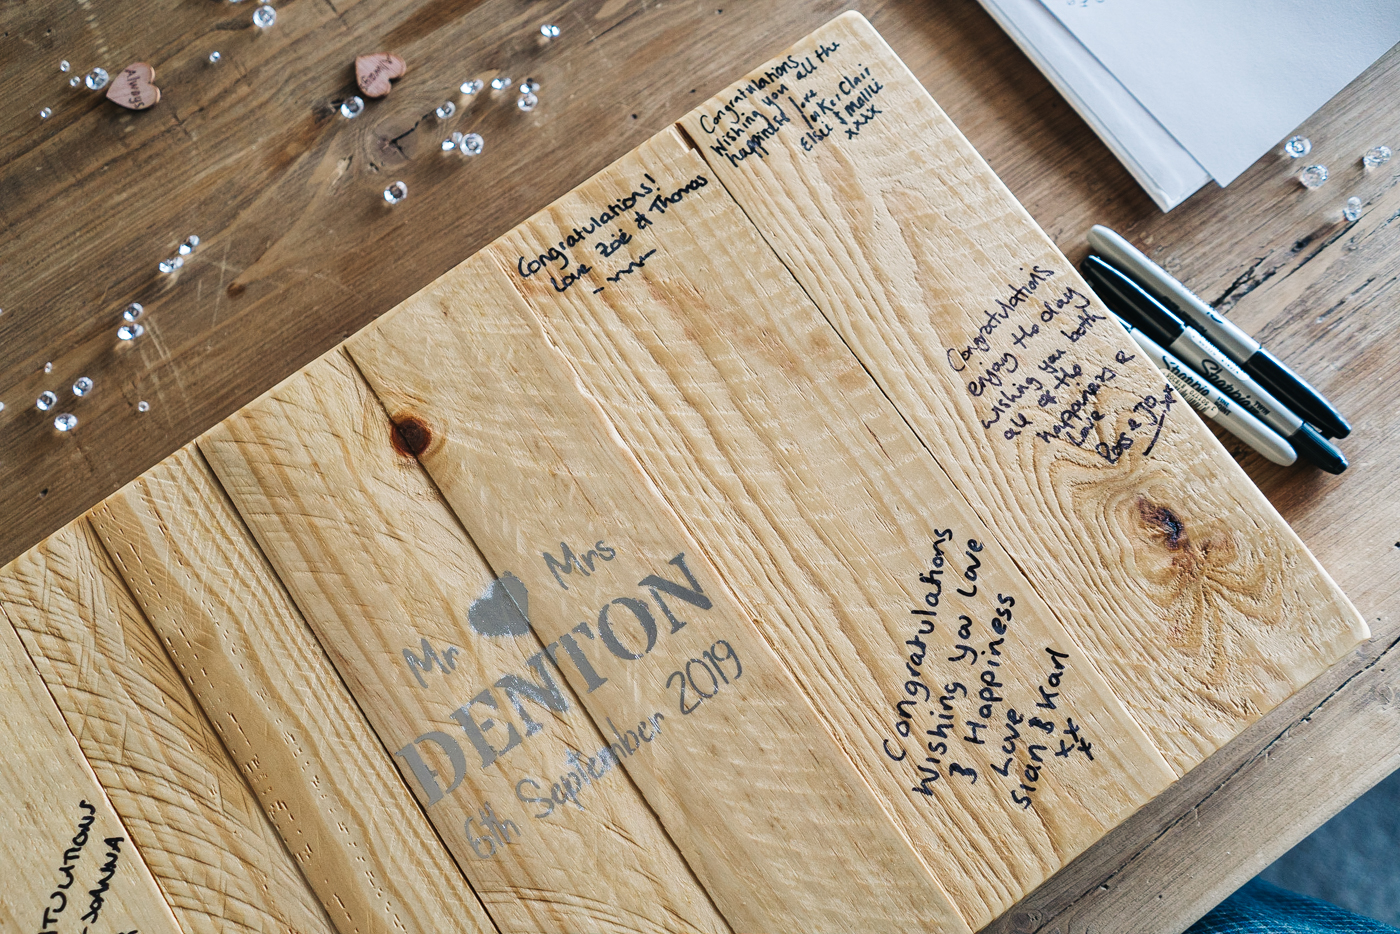 Always
Always
Congratulations
Wishing you all the
happiness love
Parker, Clair
Elsie & Mollie
xxxx
Congratulations!
Love Zoë & Thomas
Congratulations
enjoy the day
wishing you both
all of the
happiness
Love
Ross & Jo
xxx
Sharpie
Sharpie
Mr Mrs
DENTON
6th September 2019
Congratulations
Wishing you Love
& Happiness
Love
Sian & Karl
xx
x